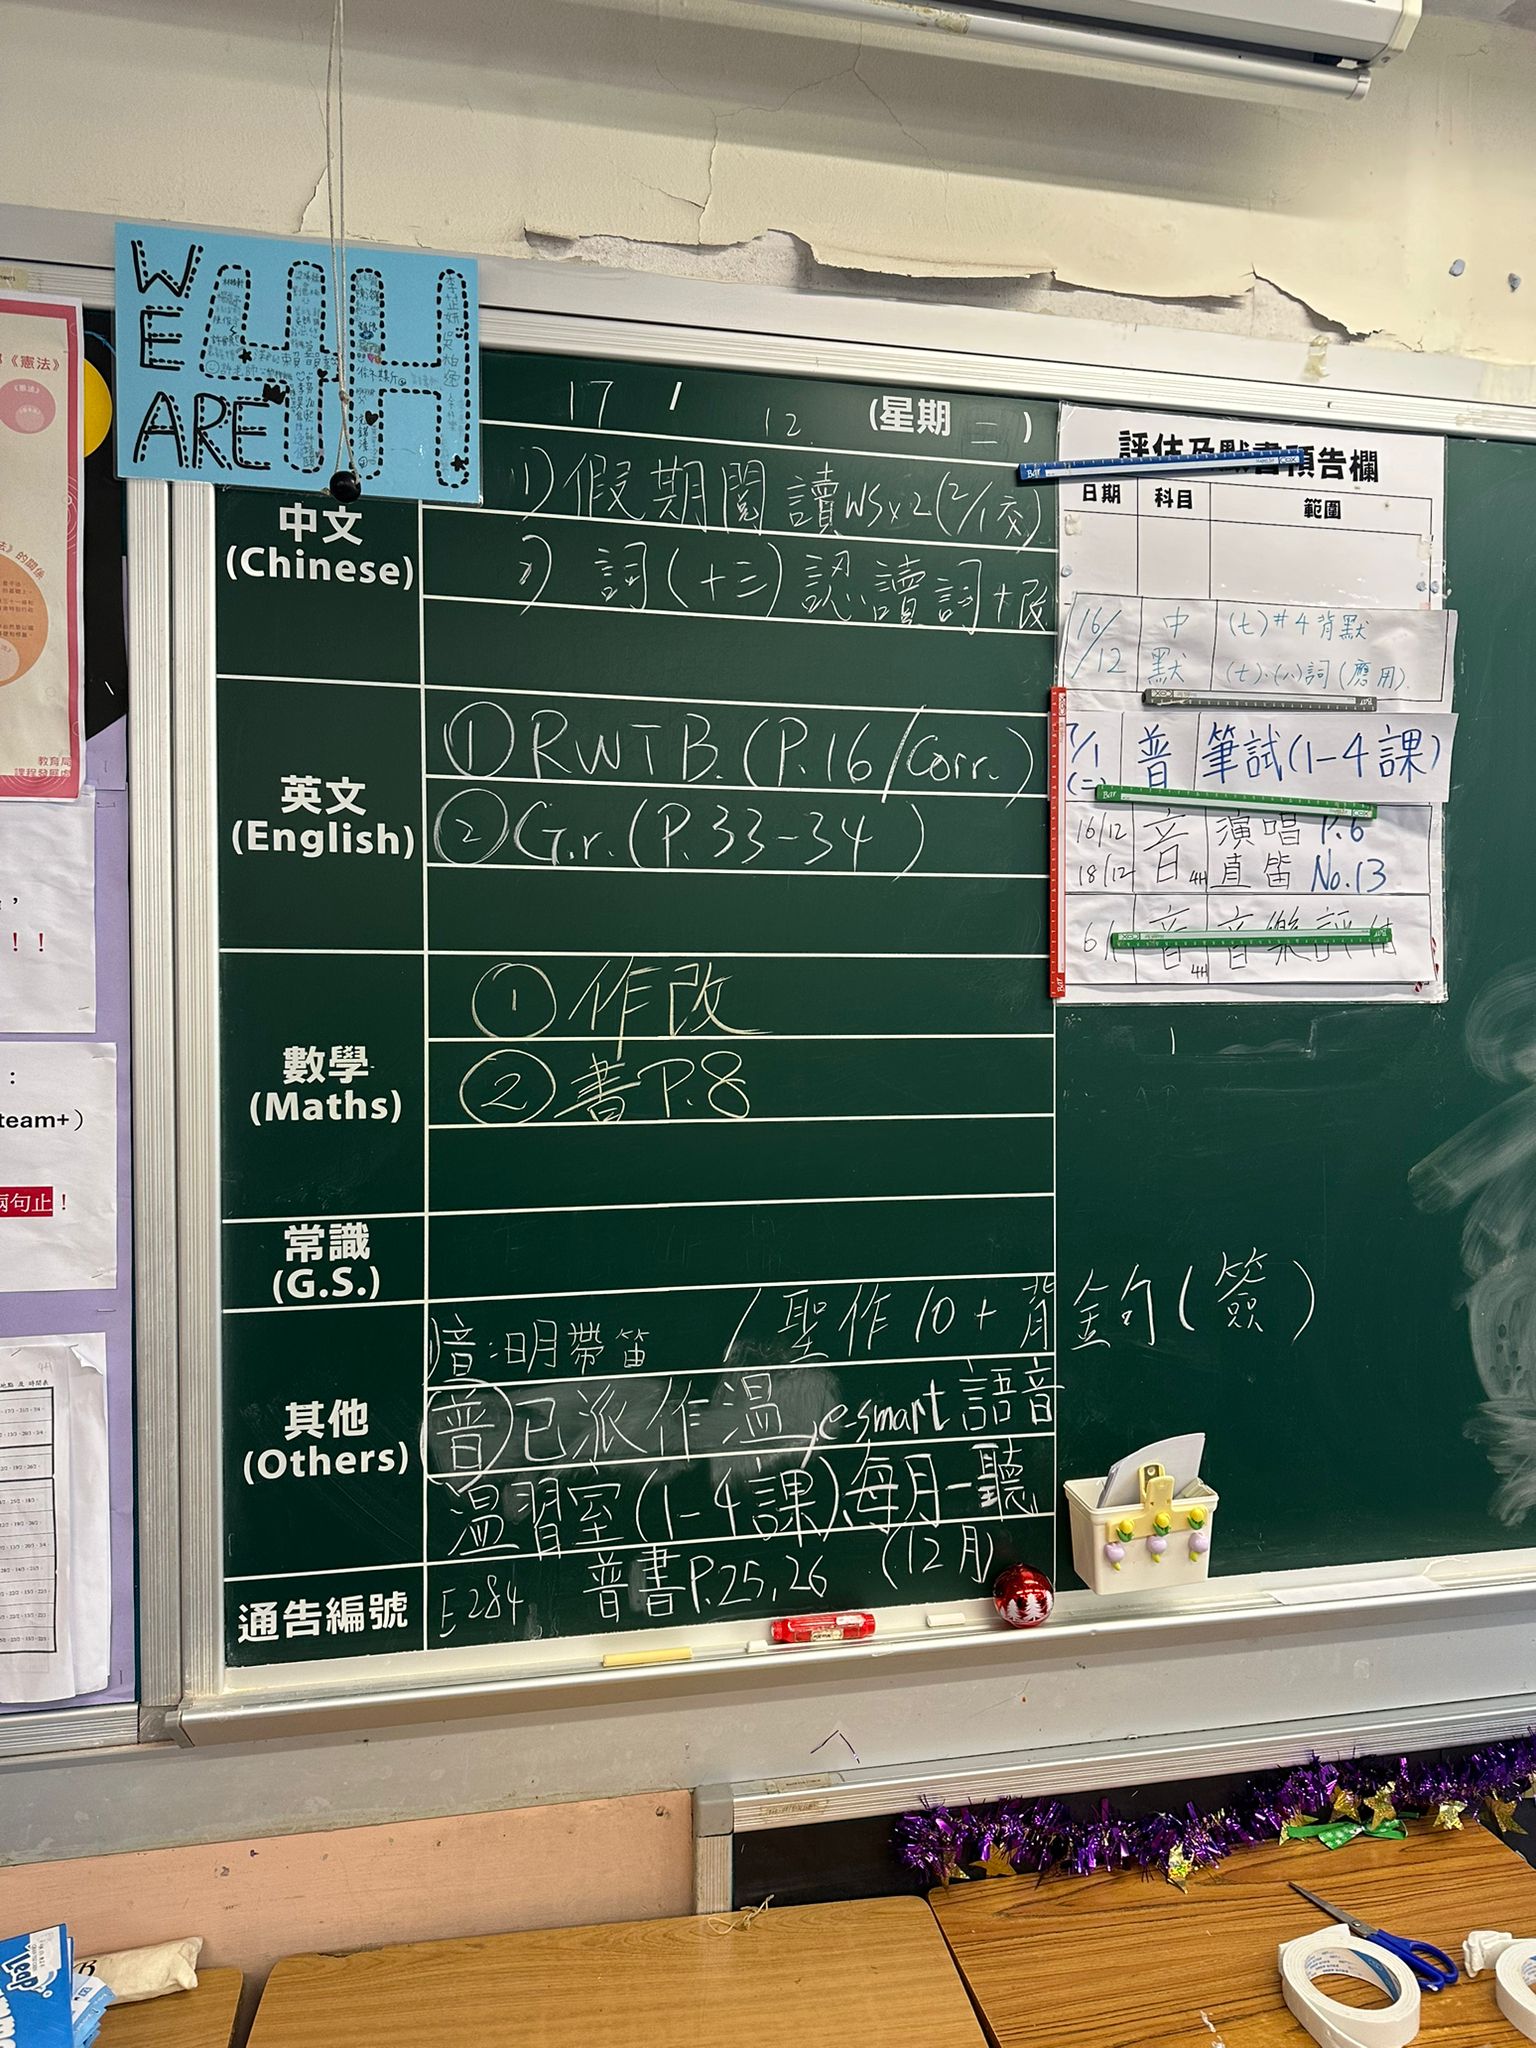 WE ARE 4H
17 / 12 (星期 二 )
中文
(Chinese)
1) 假期閱讀WS x 2 (2/1交)
2) 詞(十三)認讀詞+改
英文
(English)
① RWTB. (P.16/Corr.)
② Gr. (P.33-34)
數學
(Maths)
① 作改
② 書P.8
常識
(G.S.)
其他
(Others)
音:明帶笛 / 聖作10+背金句(簽)
普 已派作溫, e-smart 語音
溫習室(1-4課) 每月一聽
(12月)
普書P.25,26
通告編號
E284
評估及默書預告欄
日期 科目 範圍
16/12 中默 (七)#4背默
(七)、(八)詞(應用)
7/1 (二) 普 筆試(1-4課)
16/12 音 演唱 P.6
18/12 4H 直笛 No.13
6/1 音 4H 音樂評估
《憲法》
《憲法》
法》的關係
教育局
課程發展處
!!
team+)
兩句止!
Leap